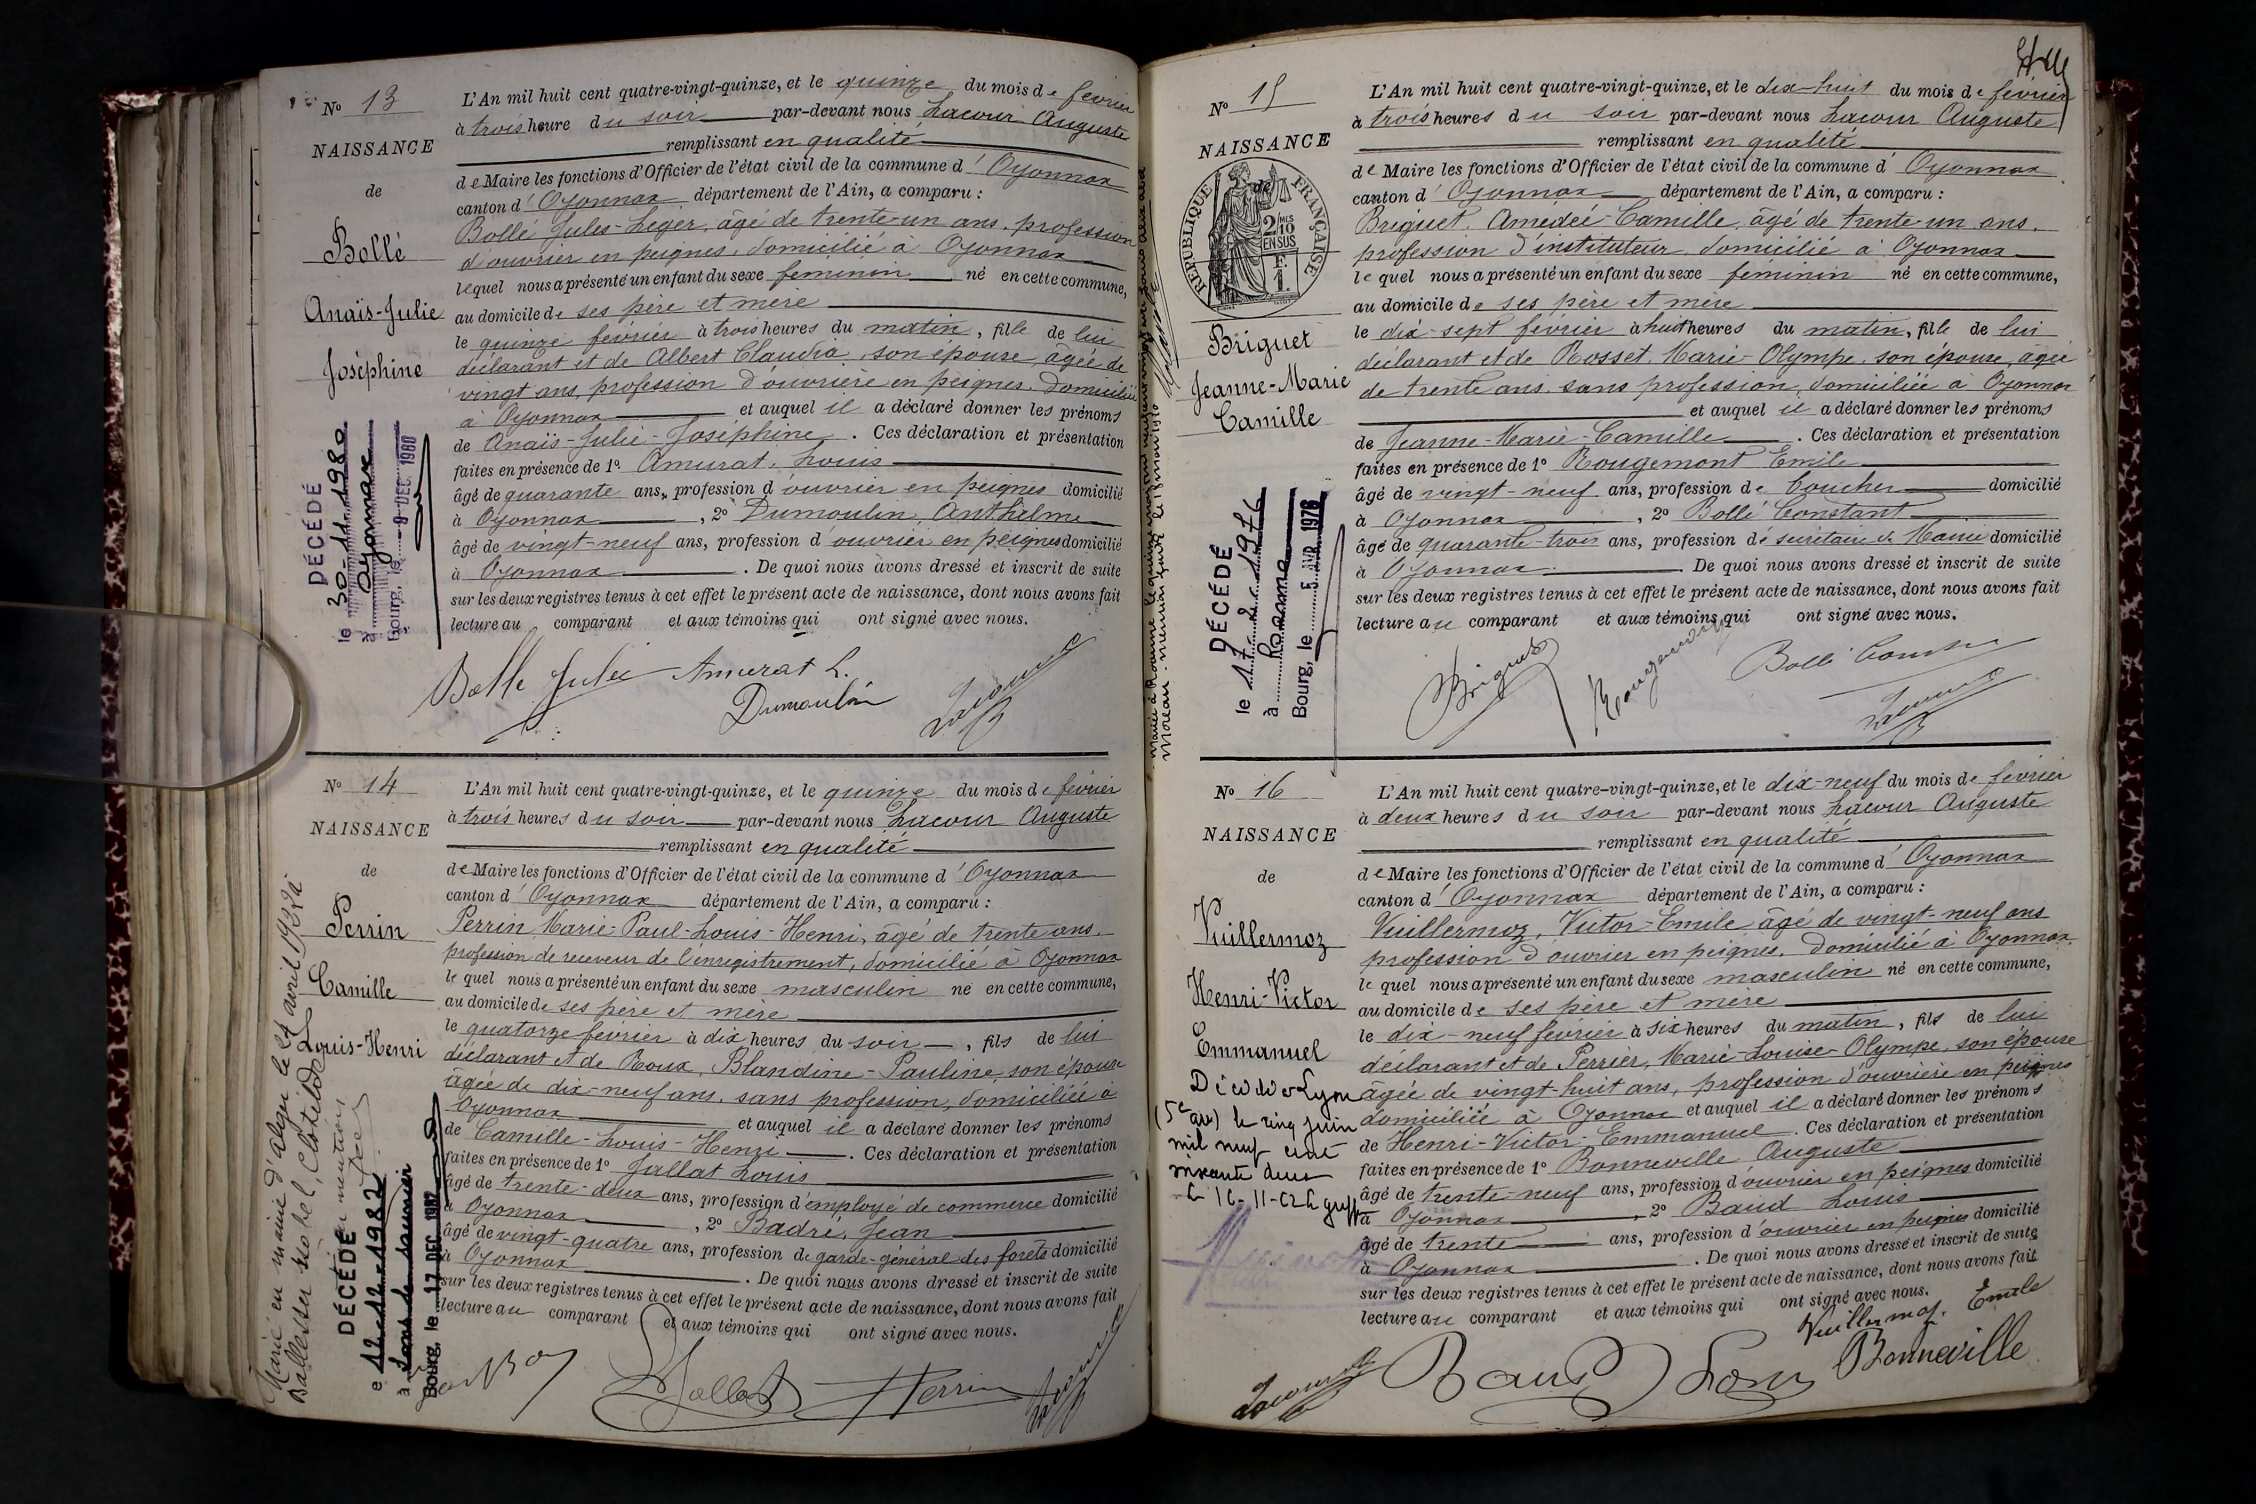 N° 13
NAISSANCE
de
Bollé
Anaïs-Julie
Joséphine
DÉCÉDÉ
le 30-11-1980
à Oyonnax
Bourg, le 9 DEC. 1980
L'An mil huit cent quatre-vingt-quinze, et le quinze du mois de février
à trois heure du soir par-devant nous Lacour Auguste
remplissant en qualité
de Maire les fonctions d'Officier de l'état civil de la commune d'Oyonnax
canton d'Oyonnax département de l'Ain, a comparu :
Bollé Jules-Leger, âgé de trente-un ans, profession
d'ouvrier en peignes, domicilié à Oyonnax
lequel nous a présenté un enfant du sexe féminin né en cette commune,
au domicile de ses père et mère
le quinze février à trois heures du matin, fille de lui
déclarant et de Albert Claudia, son épouse, âgée de
vingt ans, profession d'ouvrière en peignes, domiciliée
à Oyonnax et auquel il a déclaré donner les prénoms
de Anaïs-Julie-Joséphine. Ces déclaration et présentation
faites en présence de 1° Amurat, Louis
âgé de quarante ans, profession d'ouvrier en peignes domicilié
à Oyonnax, 2° Dumoulin, Anthelme
âgé de vingt-neuf ans, profession d'ouvrier en peignes domicilié
à Oyonnax. De quoi nous avons dressé et inscrit de suite
sur les deux registres tenus à cet effet le présent acte de naissance, dont nous avons fait
lecture au comparant et aux témoins qui ont signé avec nous.
Bollé Jules Amurat L.
Dumoulin Lacour
N° 14
NAISSANCE
de
Perrin
Camille
Louis-Henri
DÉCÉDÉ
le 12-12-1982
à Lons le Saunier
Bourg, le 17 DEC. 1982
L'An mil huit cent quatre-vingt-quinze, et le quinze du mois de février
à trois heures du soir par-devant nous Lacour Auguste
remplissant en qualité
de Maire les fonctions d'Officier de l'état civil de la commune d'Oyonnax
canton d'Oyonnax département de l'Ain, a comparu :
Perrin Marie-Paul-Louis-Henri, âgé de trente ans,
profession de receveur de l'enregistrement, domicilié à Oyonnax
lequel nous a présenté un enfant du sexe masculin né en cette commune,
au domicile de ses père et mère
le quatorze février à dix heures du soir, fils de lui
déclarant et de Roux, Blandine-Pauline, son épouse
âgée de dix-neuf ans, sans profession, domiciliée à
Oyonnax et auquel il a déclaré donner les prénoms
de Camille-Louis-Henri. Ces déclaration et présentation
faites en présence de 1° Jallat Louis
âgé de trente-deux ans, profession d'employé de commerce domicilié
à Oyonnax, 2° Badré, Jean
âgé de vingt-quatre ans, profession de garde-général des forêts domicilié
à Oyonnax. De quoi nous avons dressé et inscrit de suite
sur les deux registres tenus à cet effet le présent acte de naissance, dont nous avons fait
lecture au comparant et aux témoins qui ont signé avec nous.
Jallat Perrin Lacour
N° 15
NAISSANCE
de
RÉPUBLIQUE FRANÇAISE
2 MES
10
EN SUS
F.
1.
Briguet
Jeanne-Marie
Camille
DÉCÉDÉ
le 17-2-1976
à Roanne
Bourg, le 5 AVR. 1976
L'An mil huit cent quatre-vingt-quinze, et le dix-huit du mois de février
à trois heures du soir par-devant nous Lacour Auguste
remplissant en qualité
de Maire les fonctions d'Officier de l'état civil de la commune d'Oyonnax
canton d'Oyonnax département de l'Ain, a comparu :
Briguet, Amedeé-Camille, âgé de trente-un ans,
profession d'instituteur, domicilié à Oyonnax
lequel nous a présenté un enfant du sexe féminin né en cette commune,
au domicile de ses père et mère
le dix-sept février à huit heures du matin, fille de lui
déclarant et de Rosset, Marie-Olympe, son épouse, âgée
de trente ans, sans profession, domiciliée à Oyonnax
et auquel il a déclaré donner les prénoms
de Jeanne-Marie-Camille. Ces déclaration et présentation
faites en présence de 1° Rougemont Emile
âgé de vingt-neuf ans, profession de boucher domicilié
à Oyonnax, 2° Bollé Constant
âgé de quarante-trois ans, profession de secrétaire de Mairie domicilié
à Oyonnax. De quoi nous avons dressé et inscrit de suite
sur les deux registres tenus à cet effet le présent acte de naissance, dont nous avons fait
lecture au comparant et aux témoins qui ont signé avec nous.
Briguet Rougemont Bollé Constant
Lacour
N° 16
NAISSANCE
de
Vuillermoz
Henri-Victor
Emmanuel
Décédé à Lyon
(5e arr) le cinq juin
mil neuf cent
soixante deux
L'An mil huit cent quatre-vingt-quinze, et le dix-neuf du mois de février
à deux heures du soir par-devant nous Lacour Auguste
remplissant en qualité
de Maire les fonctions d'Officier de l'état civil de la commune d'Oyonnax
canton d'Oyonnax département de l'Ain, a comparu :
Vuillermoz, Victor-Emile âgé de vingt-neuf ans
profession d'ouvrier en peignes, domicilié à Oyonnax
lequel nous a présenté un enfant du sexe masculin né en cette commune,
au domicile de ses père et mère
le dix-neuf février à six heures du matin, fils de lui
déclarant et de Perrier, Marie-Louise-Olympe, son épouse
âgée de vingt-huit ans, profession d'ouvrière en peignes
domiciliée à Oyonnax et auquel il a déclaré donner les prénoms
de Henri-Victor-Emmanuel. Ces déclaration et présentation
faites en présence de 1° Bonneville Auguste
âgé de trente-neuf ans, profession d'ouvrier en peignes domicilié
à Oyonnax, 2° Baud Louis
âgé de trente ans, profession d'ouvrier en peignes domicilié
à Oyonnax. De quoi nous avons dressé et inscrit de suite
sur les deux registres tenus à cet effet le présent acte de naissance, dont nous avons fait
lecture au comparant et aux témoins qui ont signé avec nous.
Vuillermoz Emile
Lacour Baud Louis Bonneville